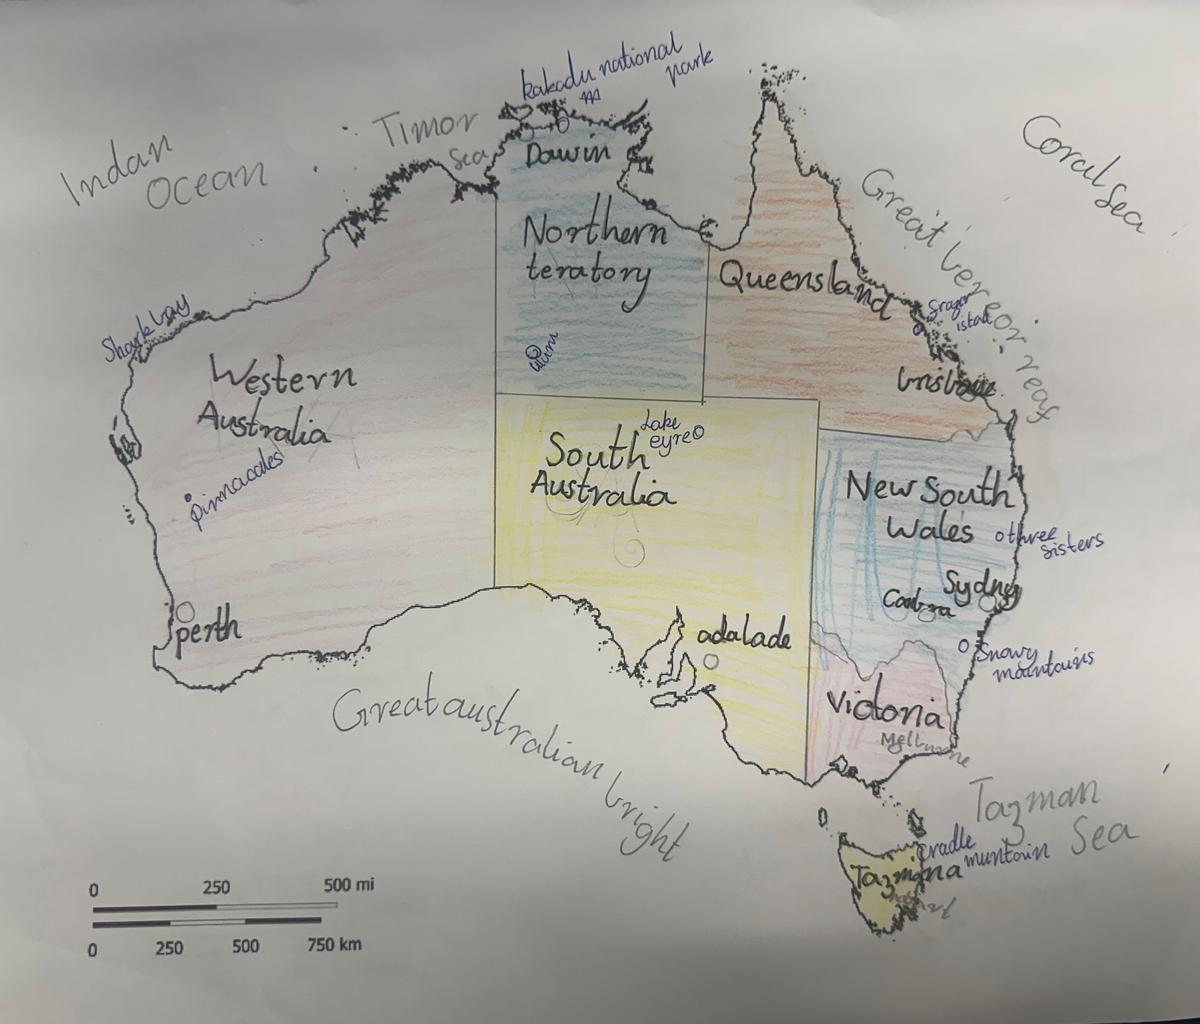 kakadu national
park
Indan
Ocean
Timor
Sea
Dawin
Coral Sea
Northern
teratory
Queensland
Great bereor reaf
Shark bay
Western
Australia
pinnacales
brisbane
Lake
eyre
South
Australia
New South
Wales
three
sisters
Sydny
perth
adalade
Snowy
mountains
Victoria
Great australian bright
Tazman
Sea
cradle
muntain
Tazmana
0 250 500 mi
0 250 500 750 km